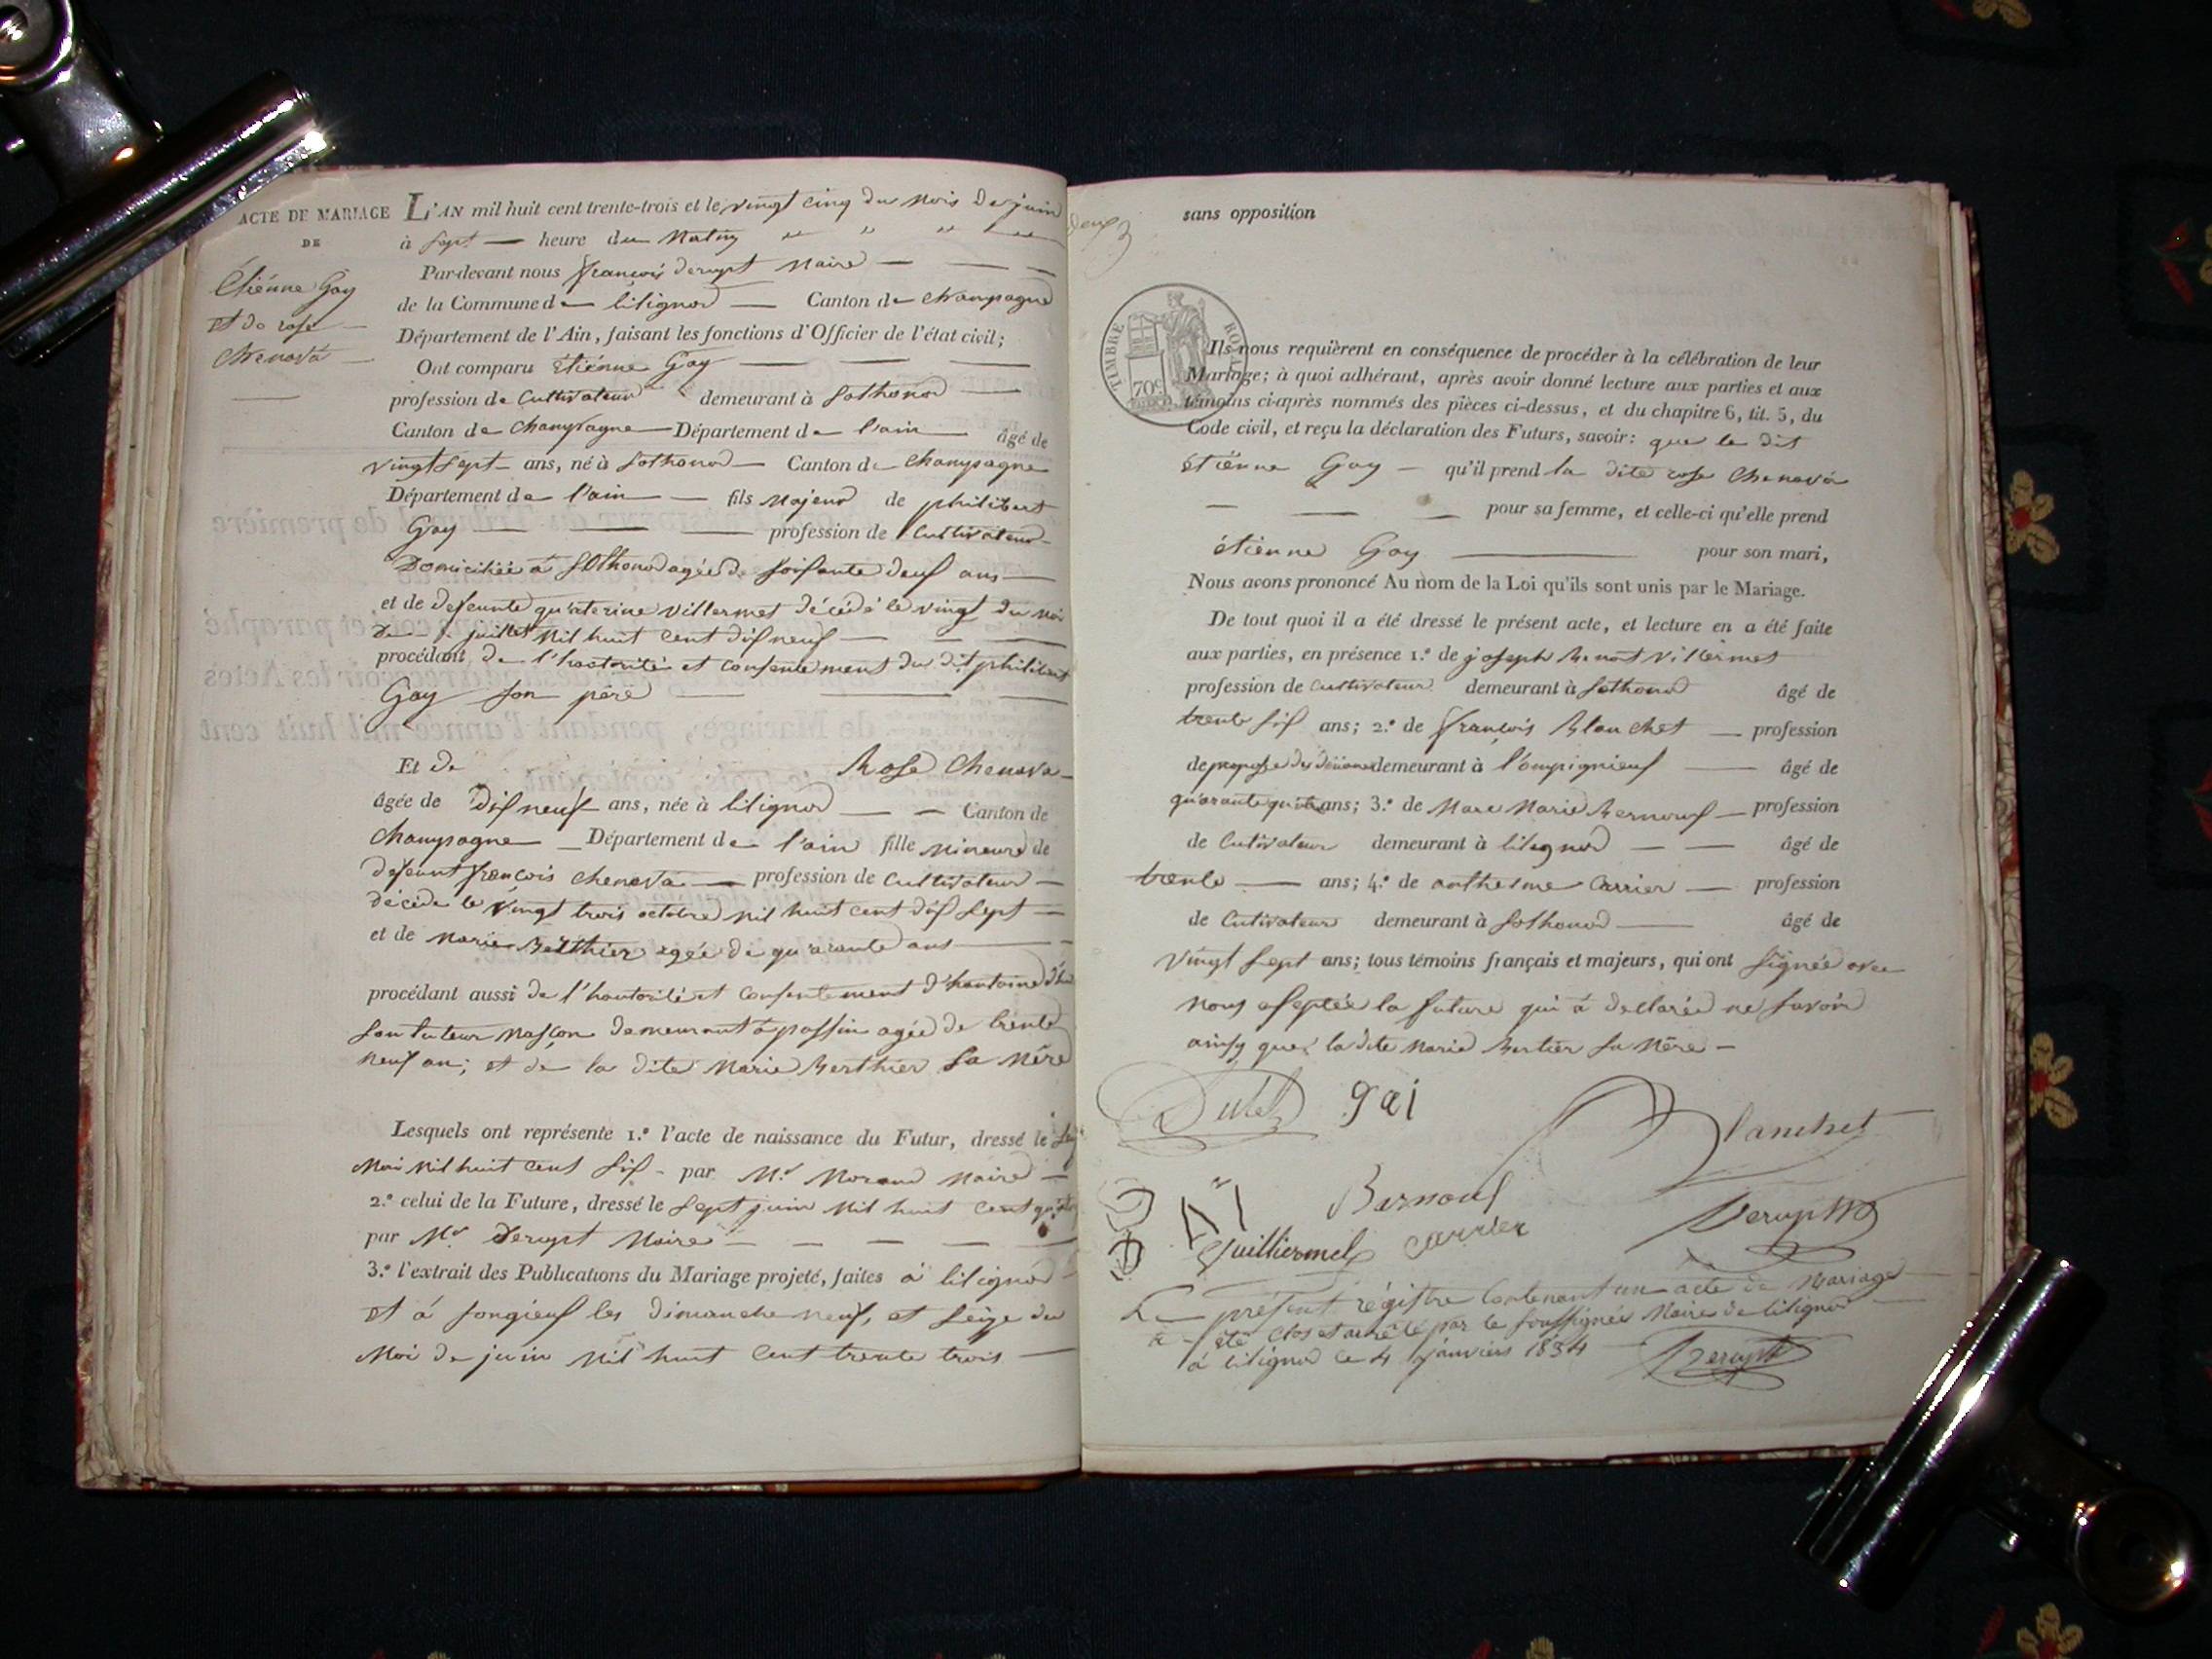 ACTE DE MARIAGE
DE
Étiénne Gay
et de rose
Chenavá
L'AN mil huit cent trente-trois et le vingt cinq du mois de juin
à sept heure du Matin
Par-devant nous françois derupt Maire
de la Commune de litignod Canton de Champagne
Département de l'Ain, faisant les fonctions d'Officier de l'état civil;
Ont comparu Étiénne Gay
profession de Cultivateur demeurant à Sothonod
Canton de Champagne Département de l'ain âgé de
vingt sept ans, né à Sothonod Canton de Champagne
Département de l'ain fils Majeur de philibert
Gay profession de Cultivateur
Domiciliée à Sothonod agée de soissante deux ans
et de defeunte qu'aterine Villermet décédé le vingt du moi
de juillet Mil huit cent dix neuf
procédant de l'hautorité et consentement du dit philibert
Gay son père
Et de Rose Chenava
âgée de dix neuf ans, née à litignod Canton de
Champagne Département de l'ain fille Mineure de
defeunt françois chenava profession de Cultivateur
décédé le vingt trois octobre Mil huit cent dix sept
et de Marie Berthier agée de qu'arante ans
procédant aussi de l'hautorité et consentement d'hantoine
son tuteur Masçon demeurant à passin agée de trente
neuf an; et de la dite Marie Berthier sa Mère
Lesquels ont représente 1.º l'acte de naissance du Futur, dressé le
Mai Mil huit cent six par Mr Morand Maire
2.º celui de la Future, dressé le sept juin Mil huit cent
par Mr Derupt Maire
3.º l'extrait des Publications du Mariage projeté, faites à litignod
et à songieux les dimanche neuf, et seize du
Moi de juin Mil huit Cent trente trois
deux
sans opposition
TIMBRE ROYAL
70c
Ils nous requièrent en conséquence de procéder à la célébration de leur
Mariage; à quoi adhérant, après avoir donné lecture aux parties et aux
témoins ci-après nommés des pièces ci-dessus, et du chapitre 6, tit. 5, du
Code civil, et reçu la déclaration des Futurs, savoir: que le dit
étiénne Gay qu'il prend la dite rose Chenavá
pour sa femme, et celle-ci qu'elle prend
étienne Gay pour son mari,
Nous avons prononcé Au nom de la Loi qu'ils sont unis par le Mariage.
De tout quoi il a été dressé le présent acte, et lecture en a été faite
aux parties, en présence 1.º de joseph Benoit Villermet
profession de Cultivateur demeurant à Sothonod âgé de
trente six ans; 2.º de françois Blanchet profession
de demeurant à l'ompignieux âgé de
ans; 3.º de Marc Marie Bernouf profession
de Cutivateur demeurant à litignod âgé de
trente ans; 4.º de anthesme Carrier profession
de Cutivateur demeurant à Sothonod âgé de
vingt sept ans; tous témoins français et majeurs, qui ont signée avec
nous eseptée la future qui à declarée ne savoir
ainsy que la dite Marie Bertier sa Mère
gai
Blanchet
Bernouf
Vuilliermet carrier
Derupt
Le présent régistre Contenant un acte de Mariage
a été Clos et arrêté par le soussignée Maire de litignod
à litignod le 4 janviers 1834
Derupt